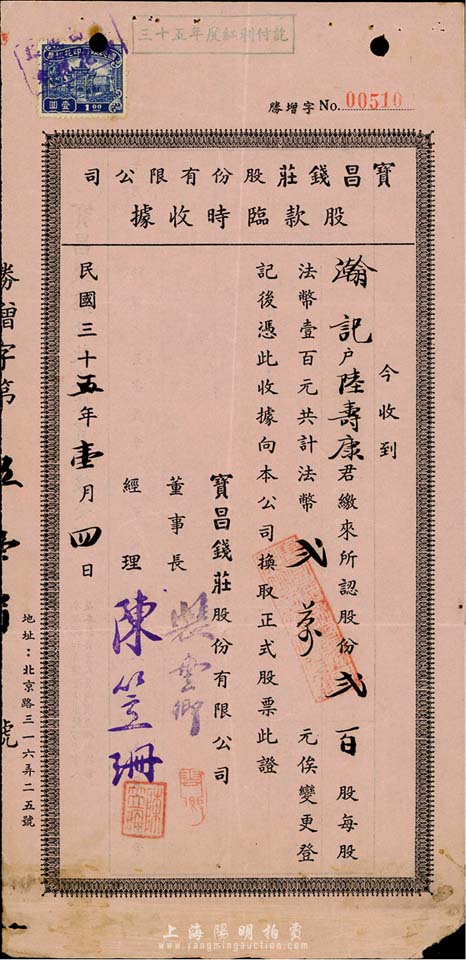 三十五年度紅利付訖
壹圓
1.00
勝增字No. 00510
寶昌錢莊股份有限公司
股款臨時收據
今收到
瀚記戶陸壽康君繳來所認股份貳百股每股
法幣壹百元共計法幣貳萬元俟變更登
記後憑此收據向本公司換取正式股票此證
寶昌錢莊股份有限公司
董事長 雲卿
經理 陳笠珊
民國三十五年壹月四日
勝增字第伍壹號
地址：北京路三一六弄二五號
上海陽明拍賣
www.yangmingauction.com